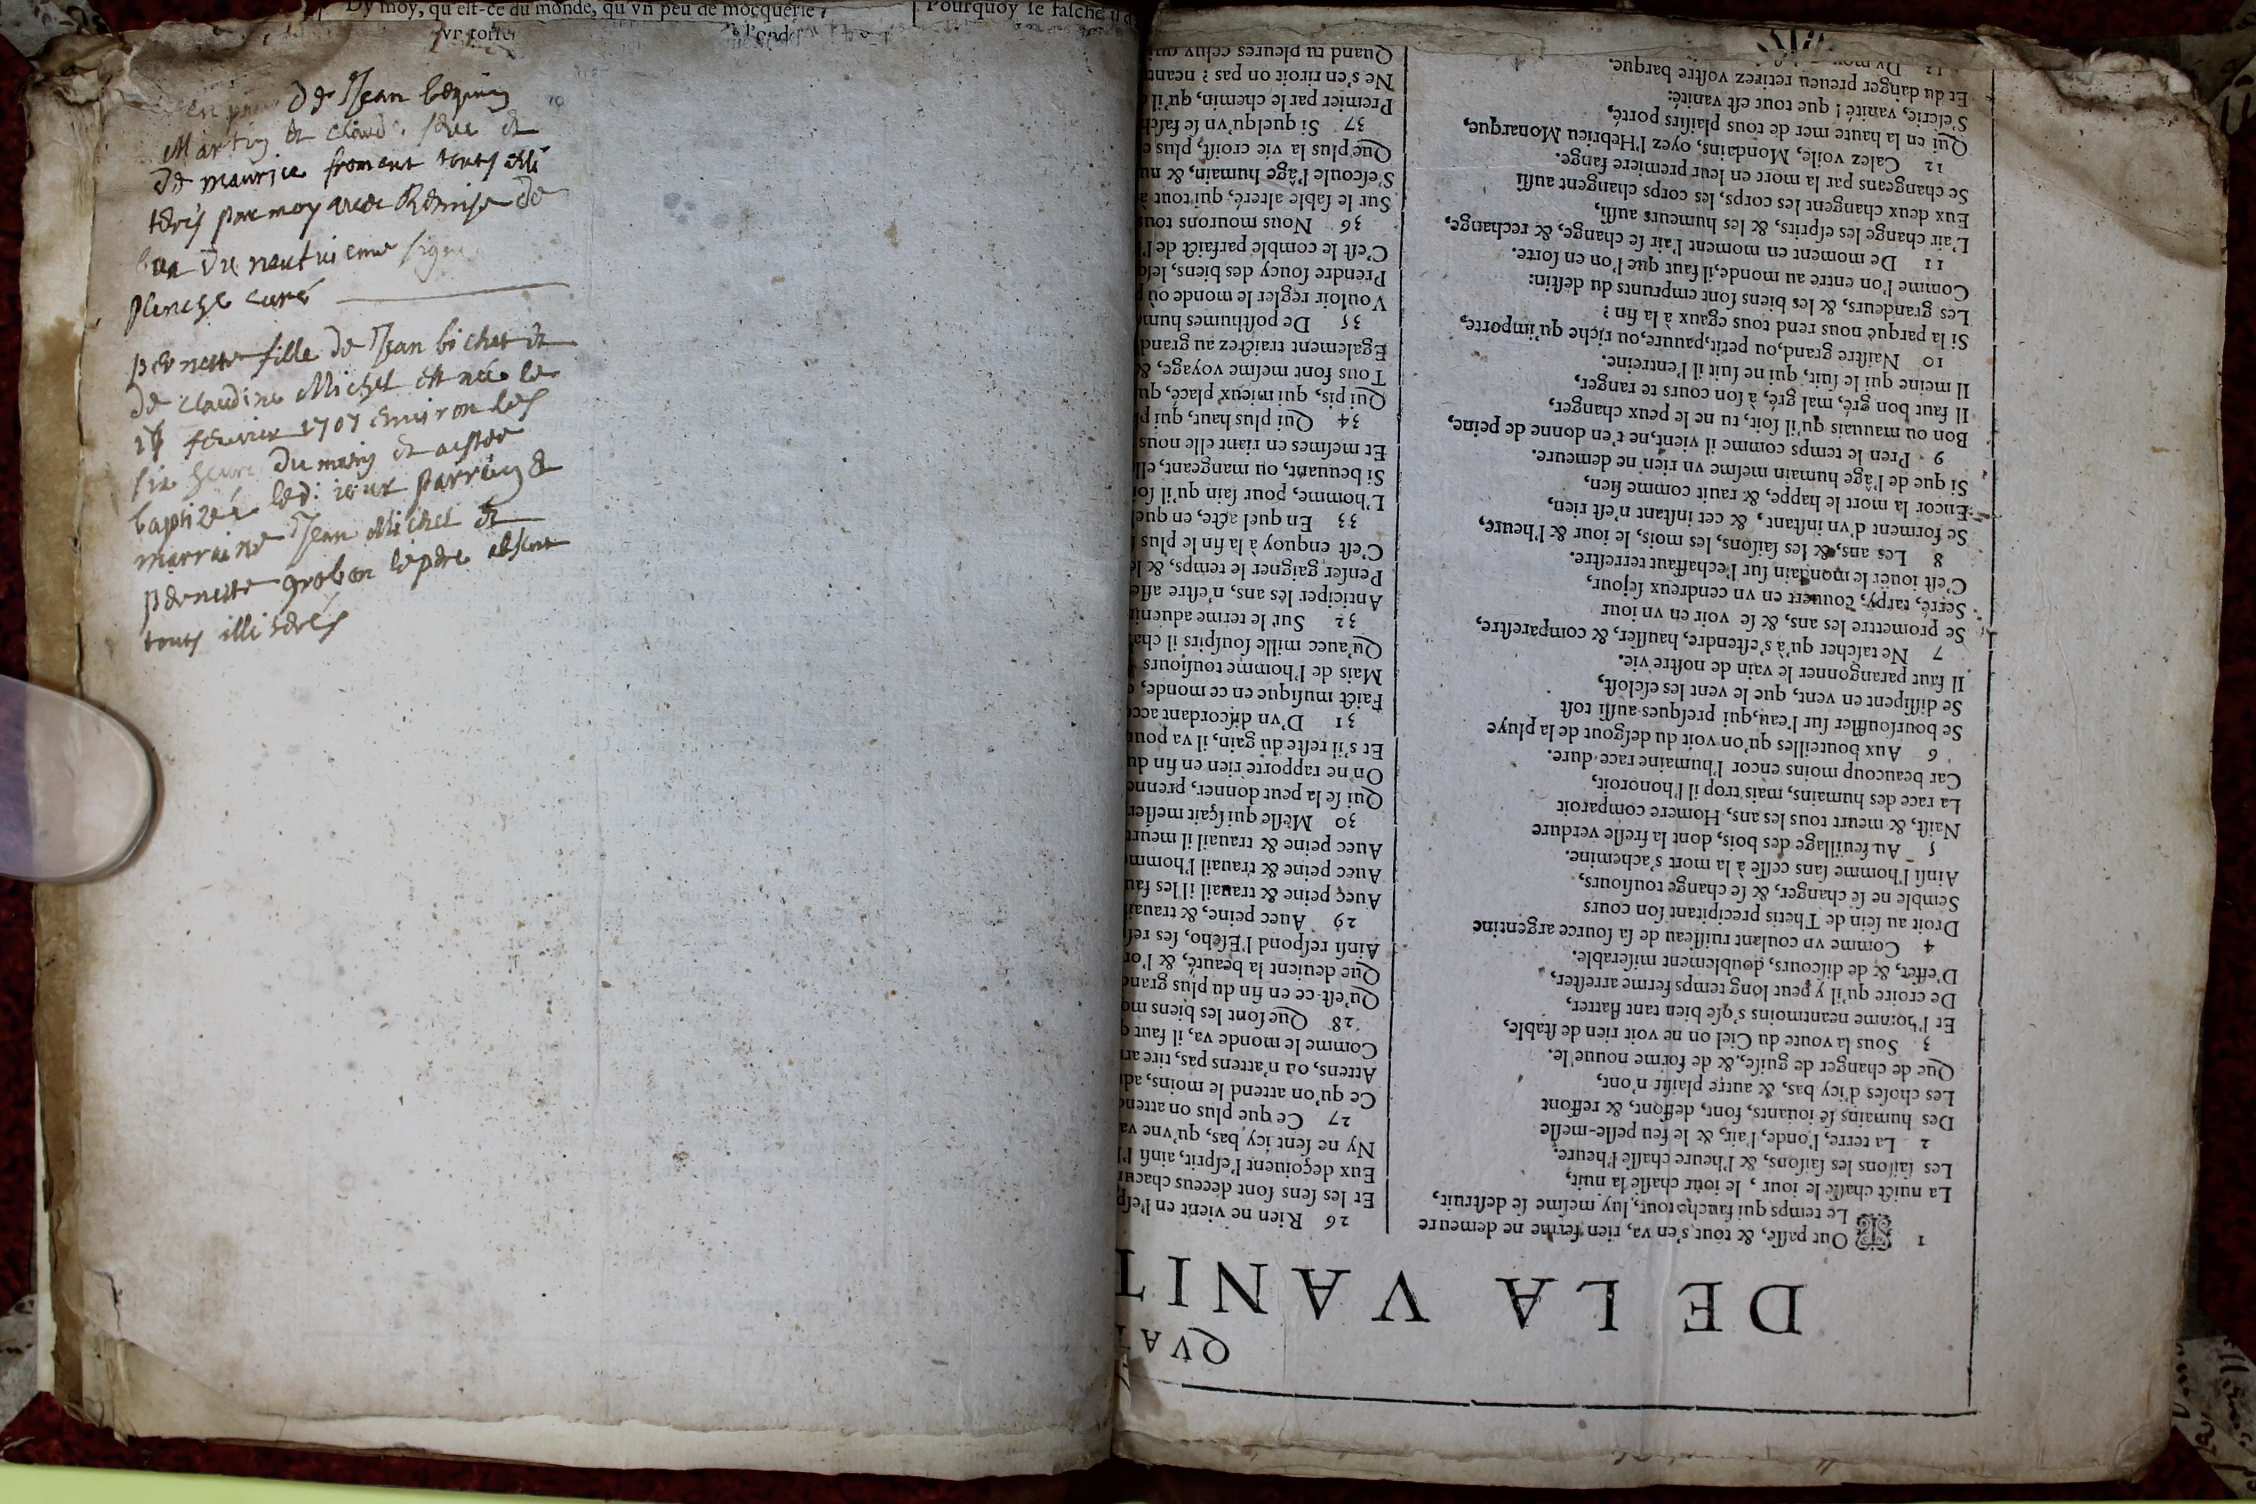 Dy moy, qu'est-ce du monde, qu'vn peu de mocquerie?
Pourquoy se fasche
de Jean
Martin et claude
de maurice froment touts illi
terés par moy avec Remise de
du neufvieme signé
planche curé
pernette fille de Jean bichet et
de claudine Michel est née le
fevrier 1707 environ les
six heure du matin et a estée
baptizée led: iour parrain et
marraine Jean Michel et
pernette grobon le pere absent
touts illiterés
QVA
DE LA VANIT
1 Tout passe, & tout s'en va, rien ferme ne demeure
Le temps qui fauche tout, luy mesme se destruit,
La nuict chasse le iour, le iour chasse la nuit,
Les saisons les saisons, & l'heure chasse l'heure.
2 La terre, l'onde, l'air, & le feu pesle-mesle
Des humains se iouants, font, deffont, & reffont
Les choses d'icy bas, & autre plaisir n'ont,
Que de changer de guise, & de forme nouuelle.
3 Sous la voute du Ciel on ne voit rien de stable,
Et l'homme neantmoins s'ose bien tant flatter,
De croire qu'il y peut long temps ferme arrester,
D'effet, & de discours, doublement miserable.
4 Comme vn coulant ruisseau de sa source argentine
Droit au sein de Thetis precipitant son cours
Semble ne se changer, & se change tousiours,
Ainsi l'homme sans cesse à la mort s'achemine.
5 Au feuillage des bois, dont la fresle verdure
Naist, & meurt tous les ans, Homere comparoit
La race des humains, mais trop il l'honoroit,
Car beaucoup moins encor l'humaine race dure.
6 Aux bouteilles qu'on voit du desgout de la pluye
Se boursouffler sur l'eau, qui presques aussi tost
Se dissipent en vent, que le vent les esclost,
Il faut parangonner le vain de nostre vie.
7 Ne tascher qu'à s'estendre, hausser, & comparestre,
Se promettre les ans, & se voir en vn iour
Serré, tarpy, couuert en vn cendreux sejour,
C'est iouer le mondain sur l'echaffaut terrestre.
8 Les ans, & les saisons, les mois, le iour & l'heure,
Se forment d'vn instant, & cet instant n'est rien,
Encor la mort le happe, & rauit comme sien,
Si que de l'âge humain mesme vn rien ne demeure.
9 Pren le temps comme il vient, ne t'en donne de peine,
Bon ou mauuais qu'il soit, tu ne le peux changer,
Il faut bon gré, mal gré, à son cours te ranger,
Il meine qui le suit, qui ne suit il l'entreine.
10 Naistre grand, ou petit, pauure, ou riche qu'importe,
Si la parque nous rend tous egaux à la fin?
Les grandeurs, & les biens sont emprunts du destin:
Comme l'on entre au monde, il faut que l'on en sorte.
11 De moment en moment l'air se change, & rechange,
L'air change les esprits, & les humeurs aussi,
Eux deux changent les corps, les corps changent aussi
Se changeans par la mort en leur premiere fange.
12 Calez voile, Mondains, oyez l'Hebrieu Monarque,
Qui en la haute mer de tous plaisirs porté,
S'escrie, vanité! que tout est vanité:
Et du danger preueu retirez vostre barque.
26 Rien ne vient en l'esp
Et les sens sont deceus chacun
Eux deçoiuent l'esprit, ainsi l'
Ny ne sent icy bas, qu'vne va
27 Ce que plus on attend
Ce qu'on attend le moins,
Attens, ou n'attens pas, tire
Comme le monde va, il faut
28 Que sont les biens mo
Qu'est-ce en fin du plus grand
Que deuient la beauté, & l'or
Ainsi respond l'Escho, ses
29 Auec peine, & trauail
Auec peine & trauail il les
Auec peine & trauail l'homme
Auec peine & trauail il meurt
30 Mesle qui sçait mesler
Qui se la peut donner, prenne
On ne rapporte rien en fin du
Et s'il reste du gain, il va pour
31 D'vn discordant acco
Faict musique en ce monde,
Mais de l'homme tousiours
Qu'auec mille souspirs il
32 Sur le terme aduenir
Anticiper les ans, n'estre
Penser gaigner le temps, & le
C'est enquoy à la fin le plus
33 En quel acte, en quel
L'homme, pour sain qu'il soi
Si beuuant, ou mangeant, elle
Et mesmes en riant elle nous
34 Qui plus haut, qui
Qui pis, qui mieux placé,
Tous font mesme voyage, &
Egalement traictez au grand
35 De posthumes
Vouloir regler le monde où
Prendre soucy des biens,
C'est le comble parfaict de l'
36 Nous mourons tous
Sur le sable alteré, qui tout
S'escoule l'âge humain, &
Que plus la vie croist, plus
37 Si quelqu'vn se fasch
Premier par le chemin, qu'il
Ne s'en riroit on pas? neant
Quand tu pleures celuy